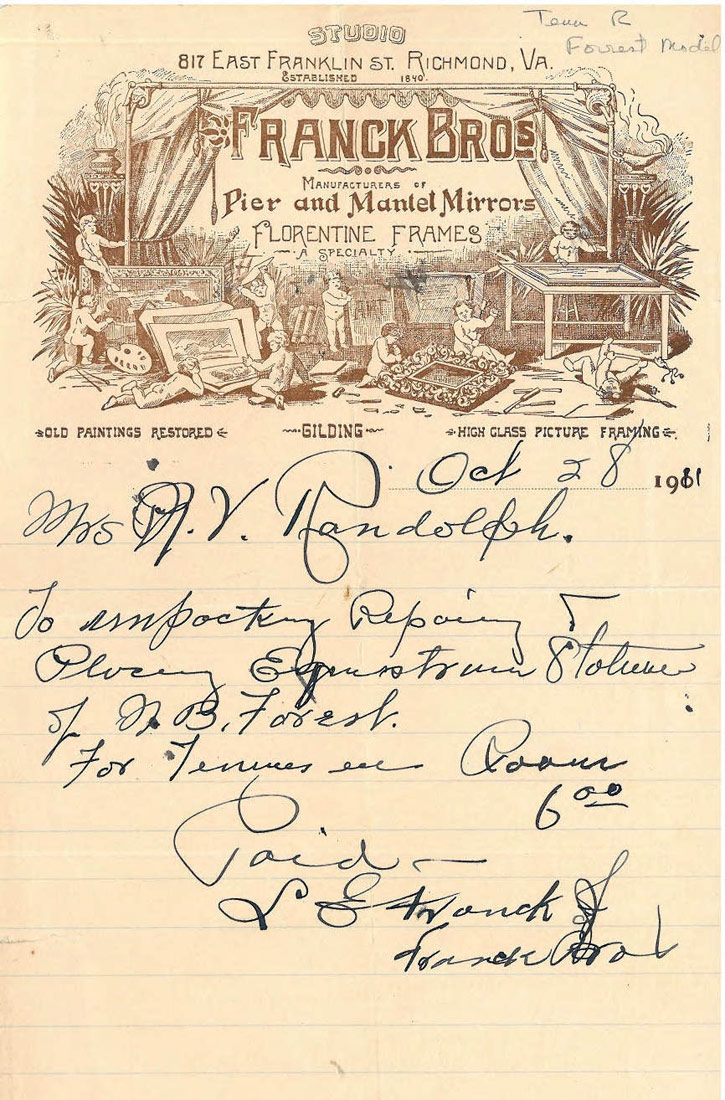 Tenn R
Forrest Model
STUDIO
817 EAST FRANKLIN ST. RICHMOND, VA.
ESTABLISHED 1840.
FRANCK BROS
MANUFACTURERS OF
Pier and Mantel Mirrors
FLORENTINE FRAMES
A SPECIALTY
ART
OLD PAINTINGS RESTORED
GILDING
HIGH CLASS PICTURE FRAMING
Oct 28 1911
Mrs N. V. Randolph.
To unpacking Repairing &
Placing Equestrian Statue
of N. B. Forest.
For Tennessee Room
6 00
Paid —
L E Franck Jr
Franck Bros